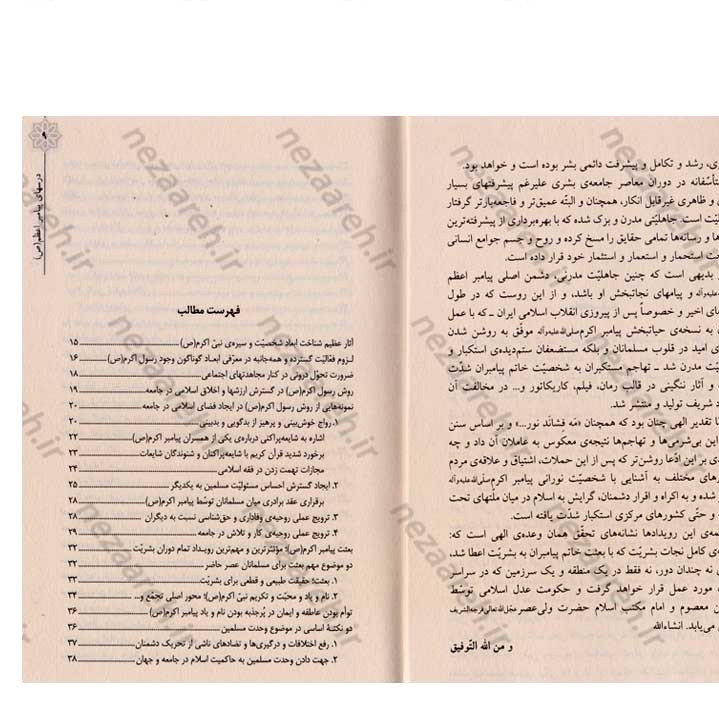 ری، رشد و تکامل و پیشرفت دائمی بشر بوده است و خواهد بود.
تأسّفانه در دوران معاصر جامعه‌ی بشری علیرغم پیشرفتهای بسیار
و ظاهری غیرقابل انکار، همچنان و البتّه عمیق‌تر و فاجعه‌بارتر گرفتار
یّت است. جاهلیّتی مدرن و بزک شده که با بهره‌برداری از پیشرفته‌ترین
ها و رسانه‌ها تمامی حقایق را مسخ کرده و روح و جسم جوامع انسانی
ت استحمار و استعمار و استثمار خود قرار داده است.
بدیهی است که چنین جاهلیّت مدرنی، دشمن اصلی پیامبر اعظم
علیه‌وآله و پیامهای نجاتبخش او باشد، و از این روست که در طول
های اخیر و خصوصاً پس از پیروزی انقلاب اسلامی ایران ـ که با عمل
به نسخه‌ی حیاتبخش پیامبر اکرم صلی‌الله‌علیه‌وآله موفّق به روشن شدن
ی امید در قلوب مسلمانان و بلکه مستضعفان ستم‌دیده‌ی استکبار و
یّت مدرن شد ـ تهاجم مستکبران به شخصیّت خاتم پیامبران شدّت
و آثار ننگینی در قالب رمان، فیلم، کاریکاتور و... در مخالفت آن
د شریف تولید و منتشر شد.
ا تقدیر الهی چنان بود که همچنان «مَه فِشاند نور...» و بر اساس سنن
این بی‌شرمی‌ها و تهاجم‌ها نتیجه‌ی معکوس به عاملان آن داد و چه
دی بر این ادّعا روشن‌تر که پس از این حملات، اشتیاق و علاقه‌ی مردم
رهای مختلف به آشنایی با شخصیّت نورانی پیامبر اکرم صلی‌الله‌علیه‌وآله
شده و به اکراه و اقرار دشمنان، گرایش به اسلام در میان ملّتهای تحت
و حتّی کشورهای مرکزی استکبار شدّت یافته است.
مه‌ی این رویدادها نشانه‌های تحقّق همان وعده‌ی الهی است که:
ه‌ی کامل نجات بشریّت که با بعثت خاتم پیامبران به بشریّت اعطا شد،
ی نه چندان دور، نه فقط در یک منطقه و یک سرزمین که در سراسر
مورد عمل قرار خواهد گرفت و حکومت عدل اسلامی توسّط
ن معصوم و امام مکتب اسلام حضرت ولی‌عصر عجّل‌الله‌تعالی‌فرجه‌الشریف
می‌یابد. انشاءالله
و من الله التّوفیق
۹
درسهای پیامبر اعظم(ص)
فهرست مطالب
آثار عظیم شناخت ابعاد شخصیّت و سیره‌ی نبیّ اکرم(ص) ۱۵
لـزوم فعّالیّت گسترده و همه‌جانبه در معرّفی ابعـاد گوناگون وجود رسول اکرم(ص) ۱۶
ضرورت تحوّل درونی در کنار مجاهدتهای اجتماعی ۱۸
روش رسول اکرم(ص) در گسترش ارزشها و اخلاق اسلامی در جامعه ۱۹
نمونه‌هایی از روش رسول اکرم(ص) در ایجاد فضای اسلامی در جامعه ۲۰
۱. رواج خوش‌بینی و پرهیز از بدگویی و بدبینی ۲۰
اشاره به شایعه‌پراکنی درباره‌ی یکی از همسران پیامبر اکرم(ص) ۲۲
برخورد شدید قرآن کریم با شایعه‌پراکنان و شنوندگان شایعات ۲۳
مجازات تهمت زدن در فقه اسلامی ۲۴
۲. ایجاد گسترش احساس مسئولیّت مسلمین به یکدیگر ۲۵
برقراری عقد برادری میان مسلمانان توسّط پیامبر اکرم(ص) ۲۸
۳. ترویج عملی روحیه‌ی وفاداری و حق‌شناسی نسبت به دیگران ۲۸
۴. ترویج عملی روحیه‌ی کار و تلاش در جامعه ۲۹
بعثت پیامبر اکرم(ص)؛ مؤثّرترین و مهم‌ترین رویـداد تمام دوران بشریّت ۳۲
دو موضوع مهم بعثت برای مسلمانان عصر حاضر ۳۲
۱. بعثت؛ حقیقت طبیعی و قطعی برای بشریّت ۳۲
۲. نام و یاد و محبّت و تکریم نبیّ اکرم(ص)؛ محور اصلی تجمّع و... ۳۴
توأم بودن عاطفه و ایمان در پُرجذبه بودن نام و یاد پیامبر اکرم(ص) ۳۶
دو نکتـه‌ی اساسی در موضوع وحدت مسلمین ۳۶
۱. رفع اختلافات و درگیری‌ها و تضادهای ناشی از تحریک دشمنان ۳۷
۲. جهت دادن وحدت مسلمین به حاکمیت اسلام در جامعه و جهان ۳۸
nezaareh.ir